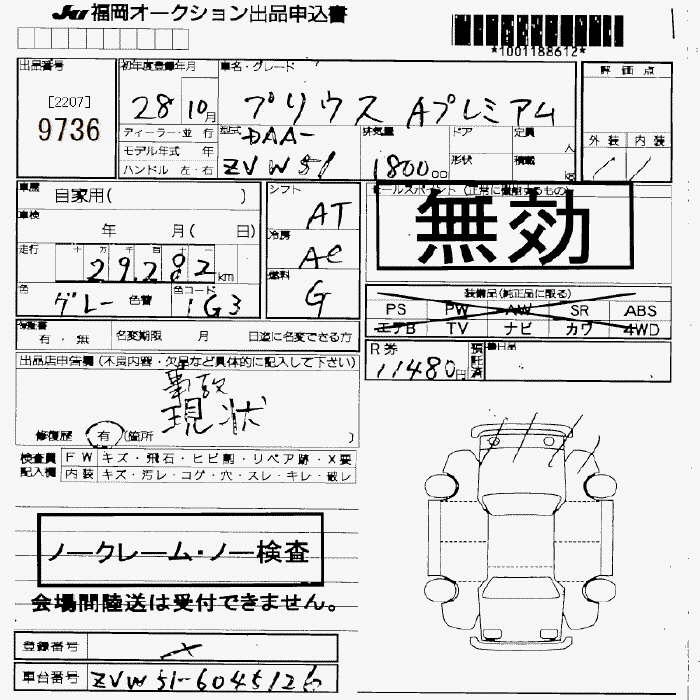 JU 福岡オークション出品申込書
*1001188612*
出品番号
[2207]
9736
初年度登録年月
28 10月
車名・グレード
プリウス Aプレミアム
評価点
外装 内装
ディーラー・並行
モデル年式 年
ハンドル 左・右
型式
DAA-
ZVW51
排気量
1800cc
ドア
形状
定員
人
積載
kg
車歴
自家用( )
車検
年 月( 日)
走行
十 万 千 百 十 一
29,282 km
色
グレー 色替
色コード
1G3
シフト
AT
冷房
AC
燃料
G
セールスポイント (正常に機能するもの)
無効
装備品(純正品に限る)
PS PW AW SR ABS
エアB TV ナビ カワ 4WD
保証書
有・無
名変期限 月 日迄に名変できる方
R券
11480円
預託済
出品店申告欄 (不良内容・欠品など具体的に記入して下さい)
事故
現状
修復歴 有 (箇所 )
検査員記入欄
FW キズ・飛石・ヒビ割・リペア跡・X要
内装 キズ・汚レ・コゲ・穴・スレ・キレ・破レ
ノークレーム・ノー検査
会場間陸送は受付できません。
登録番号
車台番号 ZVW51-6045126